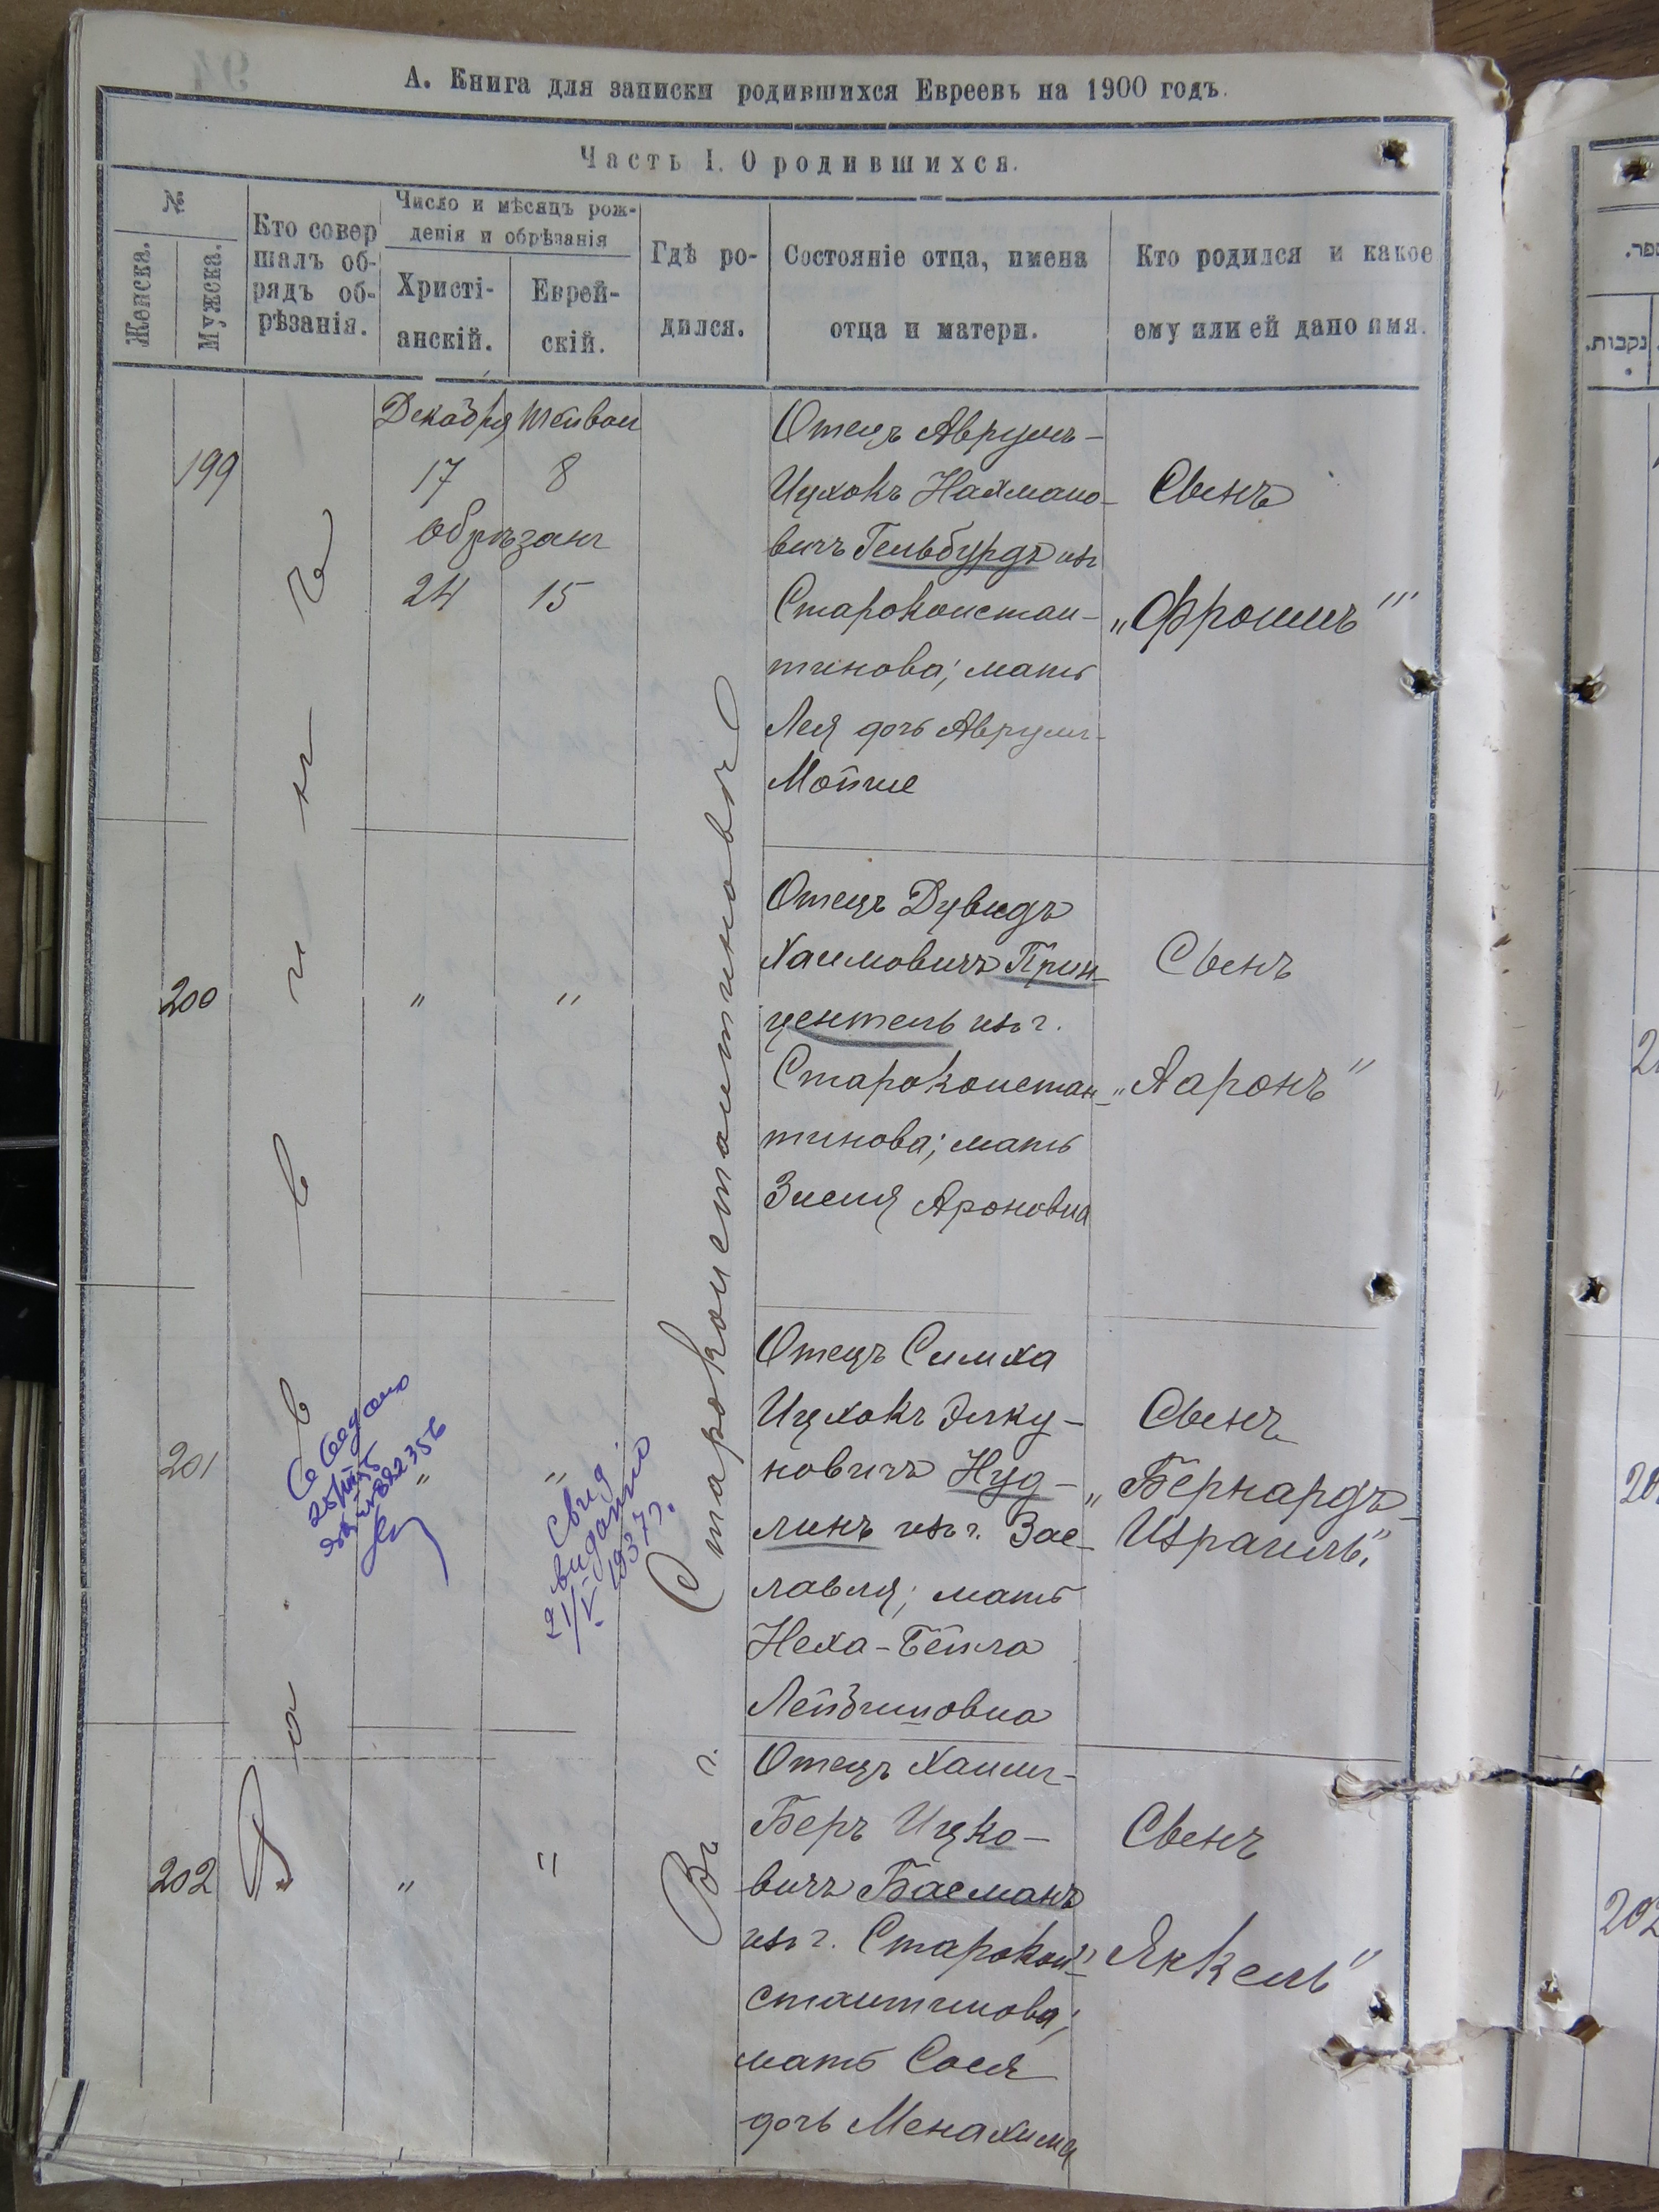 А. Книга для записки родившихся Евреевъ на 1900 годъ.
Часть I. О родившихся.
№
Женска.
Мужска.
Кто совер
шалъ об-
рядъ об-
рѣзанія.
Число и мѣсяцъ рож-
денія и обрѣзанія
Христі-
анскій.
Еврей-
скій.
Гдѣ ро-
дился.
Состояніе отца, имена
отца и матери.
Кто родился и какое
ему или ей дано имя.
199
Декабря Тейвеи
17 8
обрѣзанъ
24 15
Отецъ Аврумъ-
Ицхокъ Нахмано-
вичъ Гельбурдъ изъ
Староконстан-
тинова; мать
Лея дочь Аврумъ-
Мойше
Сынъ
„Фроимъ"
Въ г. Староконстантиновѣ
200
" "
Отецъ Дувидъ
Хаимовичъ Прин-
центель изъ г.
Староконстан-
тинова; мать
Зисля Ароновна
Сынъ
„Ааронъ"
201
" "
Свид
выдано
21/V 1937 г.
Отецъ Симха
Ицхокъ Элку-
новичъ Нуд-
линъ изъ г. Зас-
лавля; мать
Неха-Бейла
Лейбишовна
Сынъ
„Бернардъ-
Израиль"
202
" "
Отецъ Хаимъ-
Беръ Ицко-
вичъ Басманъ
изъ г. Старокон-
стантинова;
мать Сося
дочь Менахима
Сынъ
„Янкель"
נקבות.
202